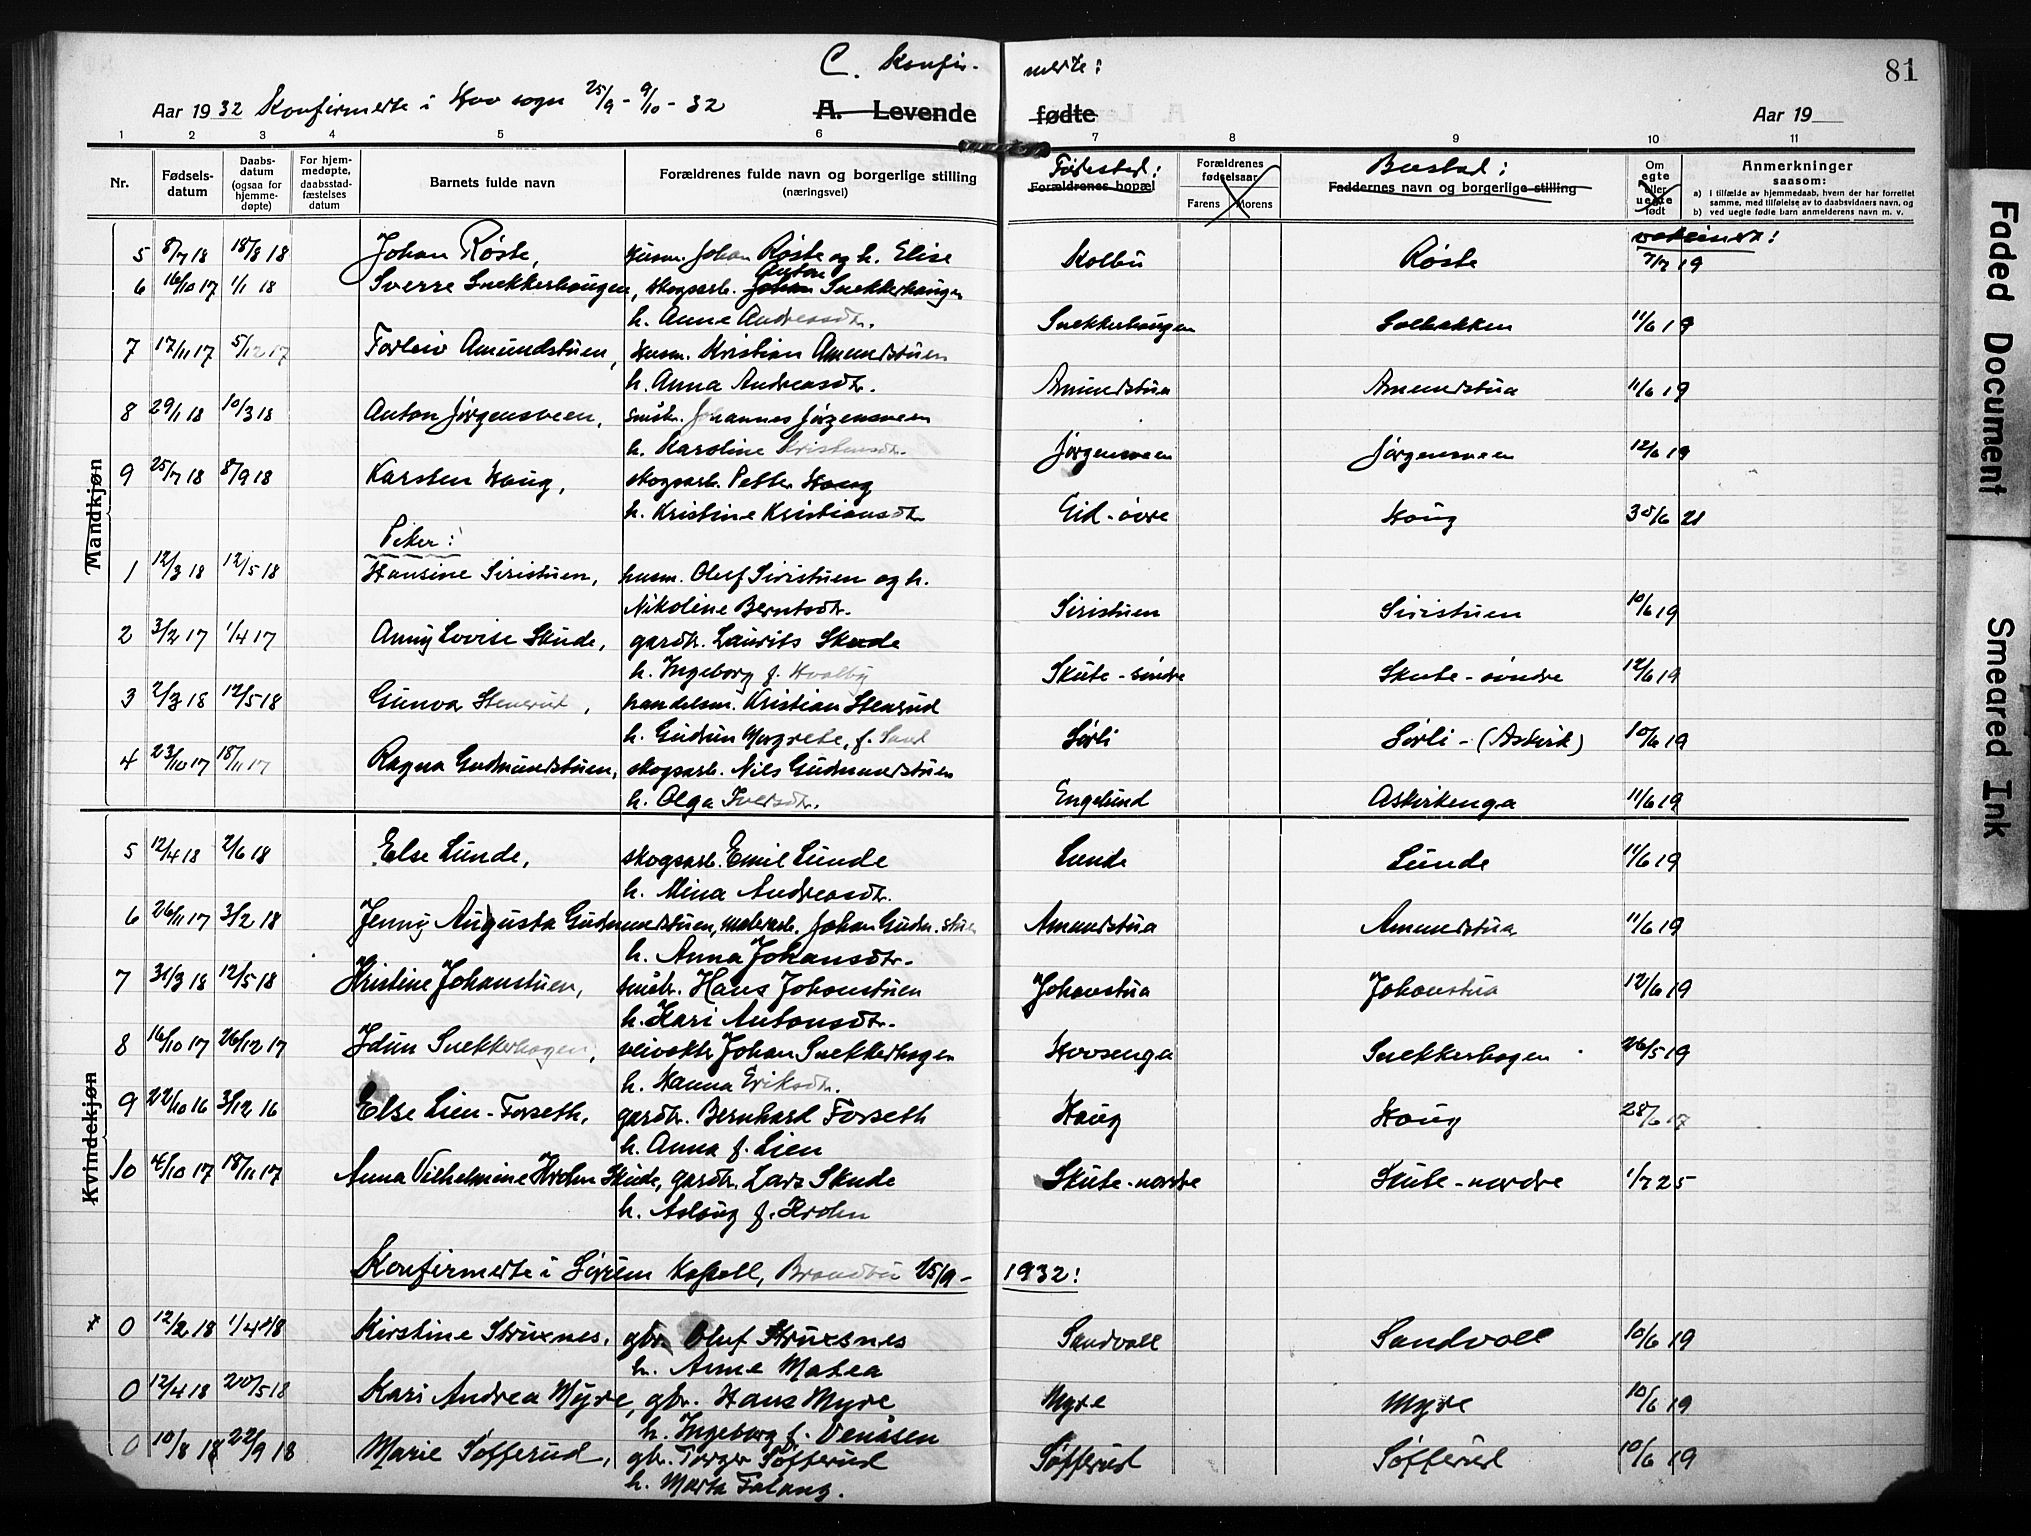 C. Konfir- merte: 81
Aar 1932 Konfirmerte i Hov sogn 25/9 - 9/10 - 32 A. Levende fødte Aar 19
1 2 3 4 5 6 7 8 9 10 11
Nr. Fødsels-datum Daabs-datum (ogsaa for hjemme-døpte) For hjem-medøpte, daabsstad-fæstelses datum Barnets fulde navn Forældrenes fulde navn og borgerlige stilling (næringsvei) Fødested: Forældrenes bopæl Forældrenes fødselsaar Farens Morens Bustad: Faddernes navn og borgerlige stilling Om egte eller uegte født Anmerkninger saasom:
a) I tilfælde av hjemmedaab, hvem der har forrettet samme, med tilføielse av to daabsvidners navn, og
b) ved uegte fødte barn anmelderens navn m. v.
vaksinert:
5 8/7 18 18/8 18 Johan Røste, husm. Johan Røste og h. Elise Kolbu Røste 7/7 19
6 16/10 17 1/1 18 Sverre Snekkerhaugen, skogsarb. Johan Anton Snekkerhaugen
h. Anne Andreasdtr. Snekkerhaugen Solbakken 11/6 19
7 17/11 17 5/12 17 Torleiv Amundstuen, husm. Kristian Amundstuen
h. Anna Andreasdtr. Amundstua Amundstua 11/6 19
8 29/1 18 10/3 18 Anton Jørgensveen, småbr. Johannes Jørgensveen
h. Karoline Kristensdtr. Jørgensveen Jørgensveen 12/6 19
9 25/7 18 8/9 18 Karsten Haug, skogsarb. Petter Haug
h. Kristine Kristiansdtr Eid-øvre Haug 30/6 21
Piker:
1 12/3 18 12/5 18 Hansine Siristuen, husm. Oluf Siristuen og h.
Nikoline Berntsdtr. Siristuen Siristuen 10/6 19
2 3/2 17 1/4 17 Anny Lovise Skude, gardbr. Laurits Skude
h. Ingeborg f. Hvalby Skute-søndre Skute-søndre 12/6 19
3 2/3 18 12/5 18 Gunvor Stenerud, handelsm. Kristian Stenrud
h. Gudrun Margrete, f. Sand Sørli Sørli-(Askirk) 10/6 19
4 23/10 17 18/11 17 Ragna Gudmundstuen, skogsarb. Nils Gudmundstuen
h. Olga Iversdtr. Engelund Askirkenga 11/6 19
5 12/4 18 2/6 18 Else Lunde, skogsarb. Emil Lunde Lunde Lunde 11/6 19
h. Mina Andreasdtr.
6 26/11 17 3/2 18 Jenny Augusta Gudmundstuen, malerarb. Johan Gudm.stuen Amundstua Amundstua 11/6 19
h. Anna Johansdtr.
7 31/3 18 12/5 18 Kristine Johanstuen, småbr. Hans Johanstuen Johanstua Johanstua 12/6 19
h. Kari Antonsdtr.
8 16/10 17 26/12 17 Idun Snekkerhagen, veivokter Johan Snekkerhagen Hovsenga Snekkerhagen 26/5 19
h. Hanna Eriksdtr.
9 22/10 16 3/12 16 Else Lien-Forseth, gardbr. Bernhard Forseth Haug Haug 28/6 17
h. Anna f. Lien
10 4/10 17 18/11 17 Anna Vilhelmine Krohn Skude, gardbr. Lars Skude Skute-nordre Skute-nordre 1/7 25
h. Aslaug f. Krohn
Konfirmerte i Sørum kapell, Brandbu 25/9 - 1932:
x 0 12/2 18 1/4 18 Kirstine Struxnes, gbr. Oluf Struxsnes Sandvoll Sandvoll 10/6 19
h. Anne Matea
0 12/4 18 20/5 18 Kari Andrea Myre, gbr. Hans Myre Myre Myre 10/6 19
h. Ingeborg f. Venåsen
0 10/8 18 22/9 18 Marie Søfferud, gbr. Torger Søfferud Søfferud Søfferud 10/6 19
h. Marta Falang.
Mandkjøn
Kvindekjøn
Faded Document
Smeared Ink